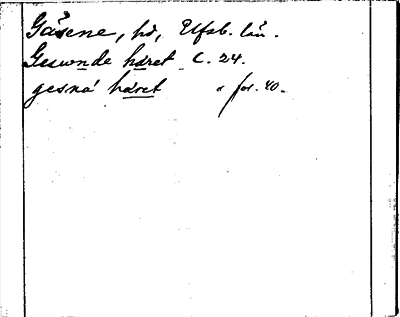 Gåsene, hd, Elfsb. län.
Gesunde häret C. 24.
gesna häret " for. 40.